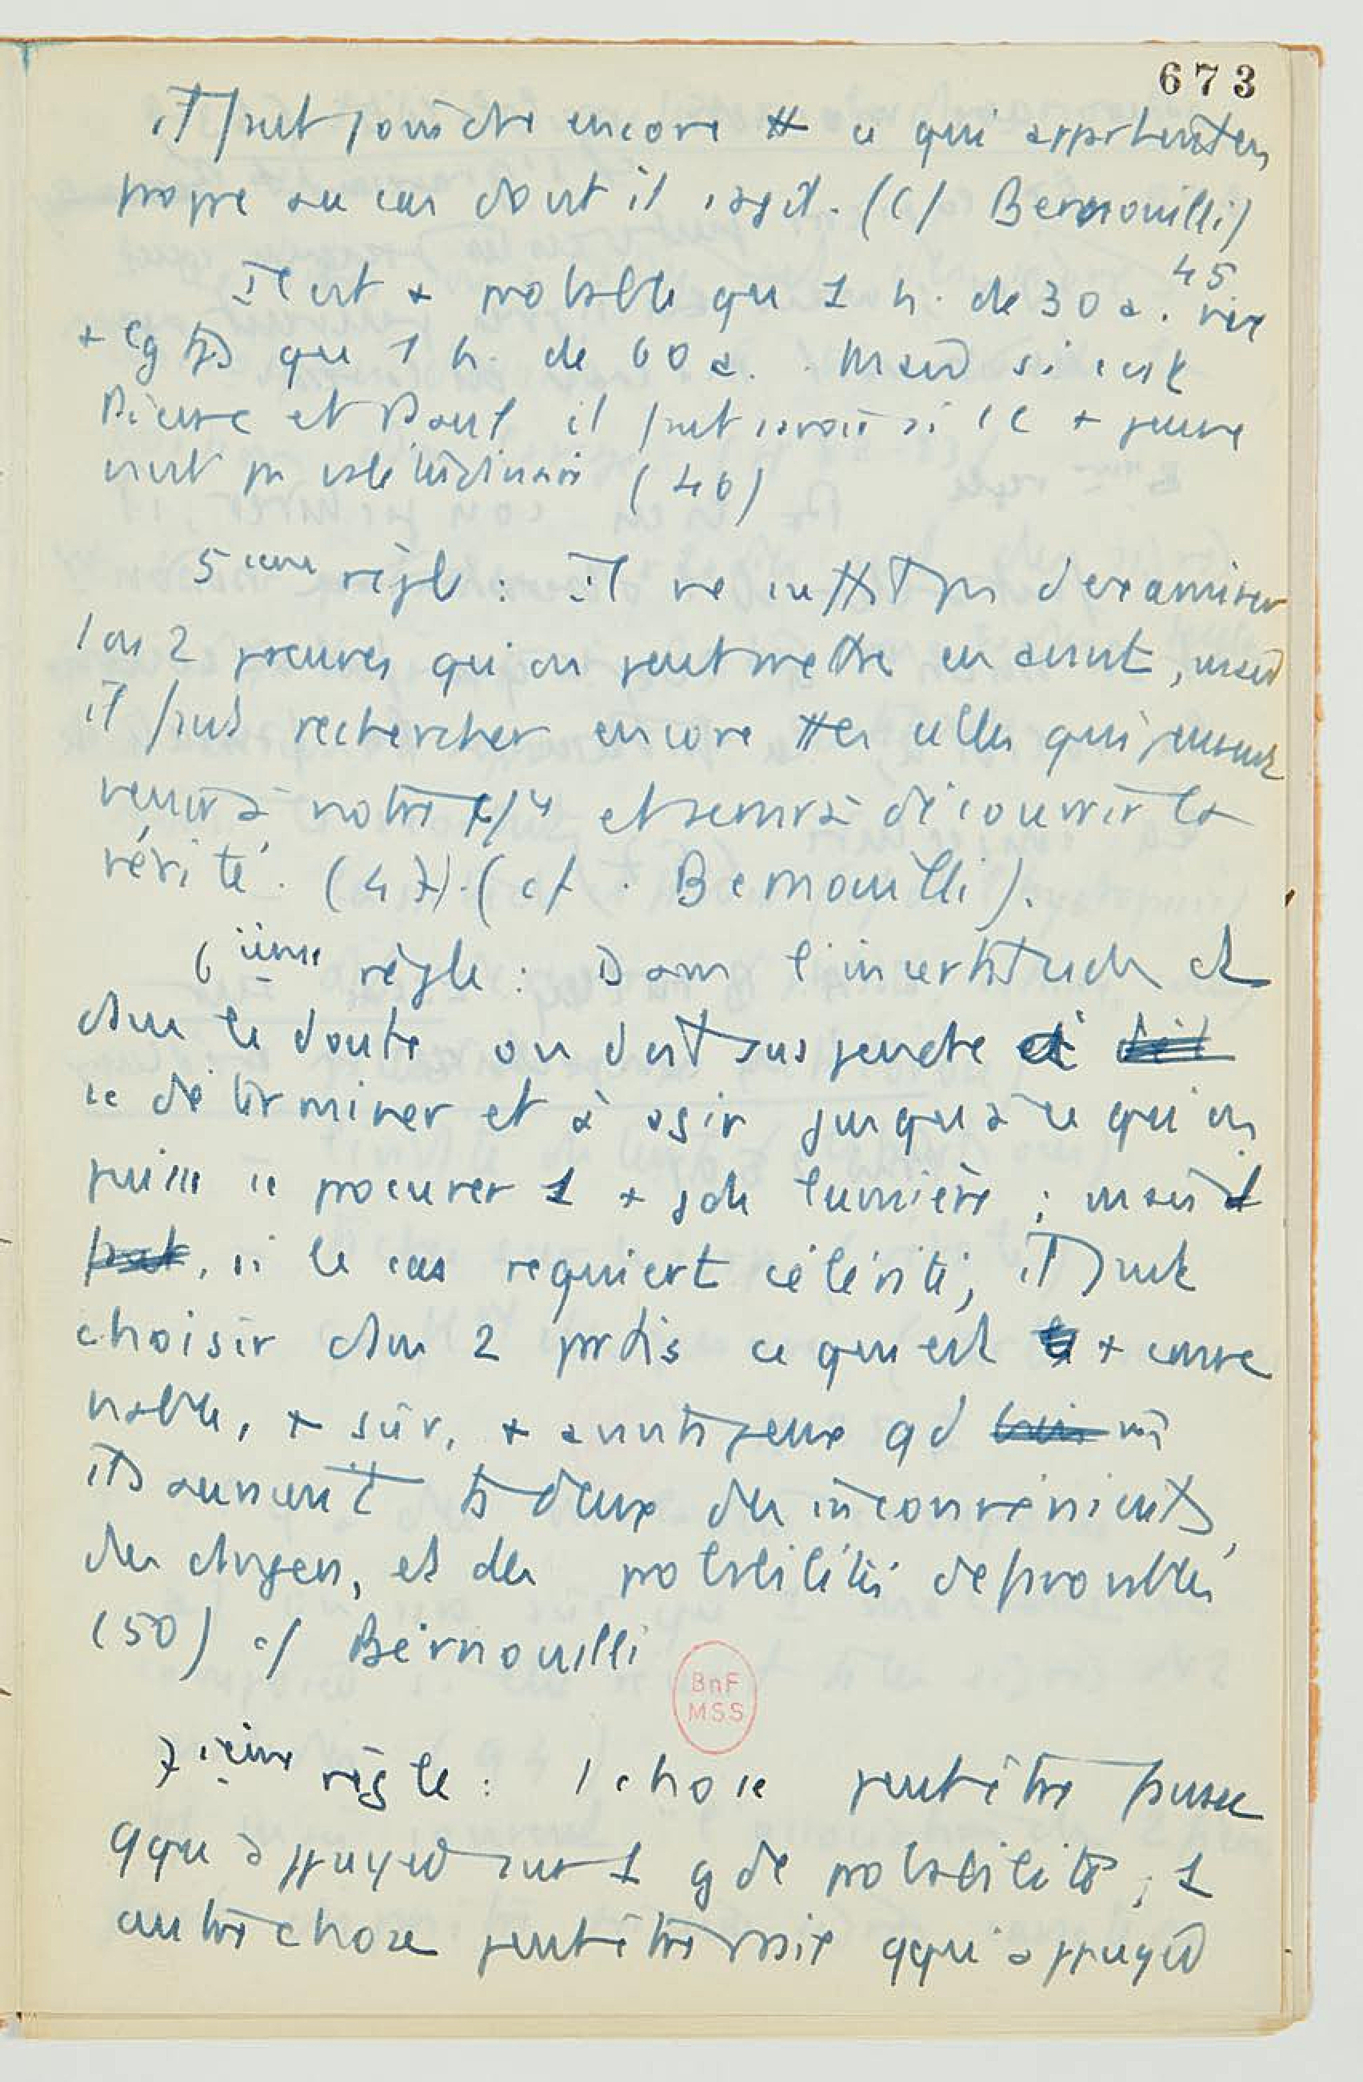 673
il faut joindre encore tt ce qui appartient en
propre au cas dont il s'agit. (cf Bernouilli)
45
Il est + probable qu 1 h. de 30 a. vive
+ lgtps que 1 h. de 60 a. Mais si c'est
Pierre et Paul il faut savoir si le + jeune
n'est pas valétudinaire (46)
5ième règle : Il ne suffit pas d'examiner
1 ou 2 preuves qu'on peut mettre en avant, mais
il faut rechercher encore ttes celles qui peuvent
venir à notre et servir à découvrir la
vérité. (47). (cf. Bernouilli).
6ième règle : Dans l'incertitude et
dans le doute on doit suspendre à
se déterminer et à agir jusqu'à ce qu'on
puisse se procurer 1 + gde lumière ; mais
, si le cas requiert célérité, il faut
choisir dans 2 partis ce qui est + conve
nable, + sûr, + avantageux qd
ils auraient ts deux des inconvénients,
des dangers, et des probabilités défavorables
(50) cf Bernouilli
BnF
MSS
7ième règle : 1 chose peut être fausse
qque appuyée sur 1 gde probabilité, 1
autre chose peut être vraie qque appuyée